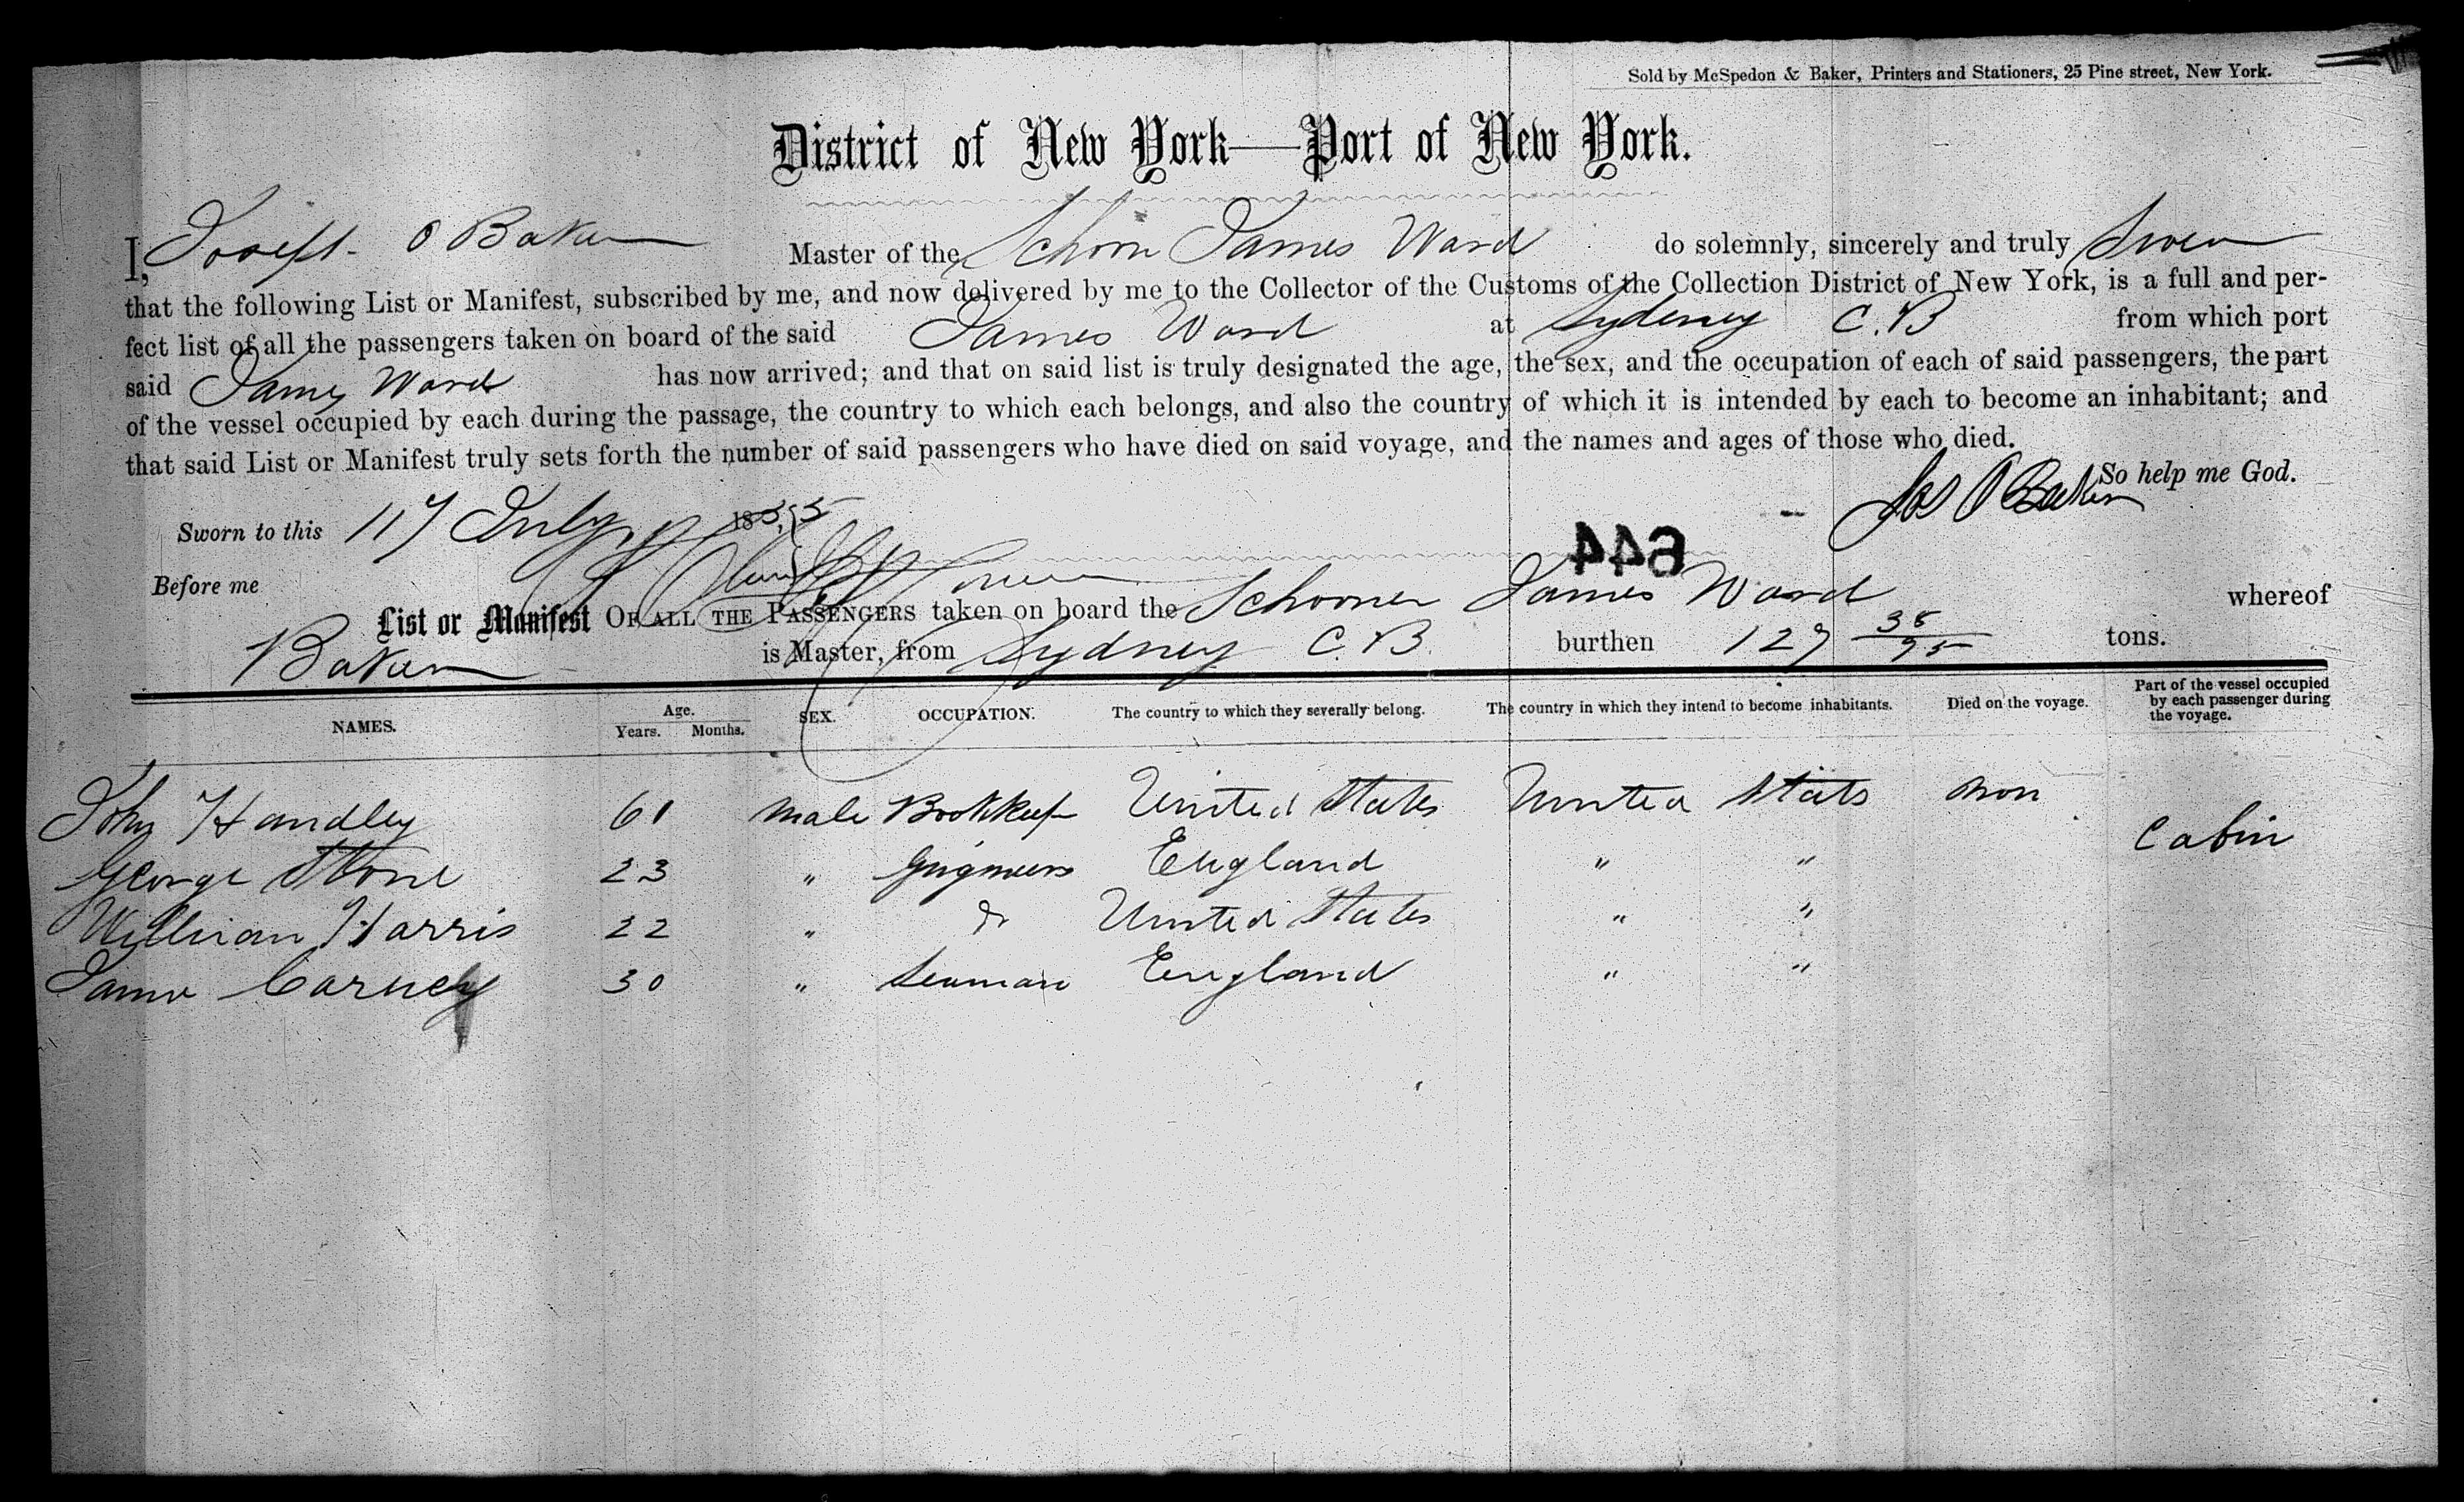 Sold by McSpedon & Baker, Printers and Stationers, 25 Pine street, New York.
District of New York—Port of New York.
I, Joseph O Baker Master of the Schoon James Ward do solemnly, sincerely and truly Swear
that the following List or Manifest, subscribed by me, and now delivered by me to the Collector of the Customs of the Collection District of New York, is a full and per-
fect list of all the passengers taken on board of the said James Ward at Sydeney C.B from which port
said James Ward has now arrived; and that on said list is truly designated the age, the sex, and the occupation of each of said passengers, the part
of the vessel occupied by each during the passage, the country to which each belongs, and also the country of which it is intended by each to become an inhabitant; and
that said List or Manifest truly sets forth the number of said passengers who have died on said voyage, and the names and ages of those who died.
So help me God.
Jos O Baker
Sworn to this 117 July 1855
644
Before me
List or Manifest OF ALL THE PASSENGERS taken on board the Schooner James Ward whereof
Baker is Master, from Sydney C.B. burthen 127 38/95 tons.
NAMES. Age. Years. Months. SEX. OCCUPATION. The country to which they severally belong. The country in which they intend to become inhabitants. Died on the voyage. Part of the vessel occupied by each passenger during the voyage.
John Handley 61 male Bookkeep United States United Stats non Cabin
George Stone 23 " England " "
William Harris 22 " Do United States " "
James Carney 30 " Seaman England " "